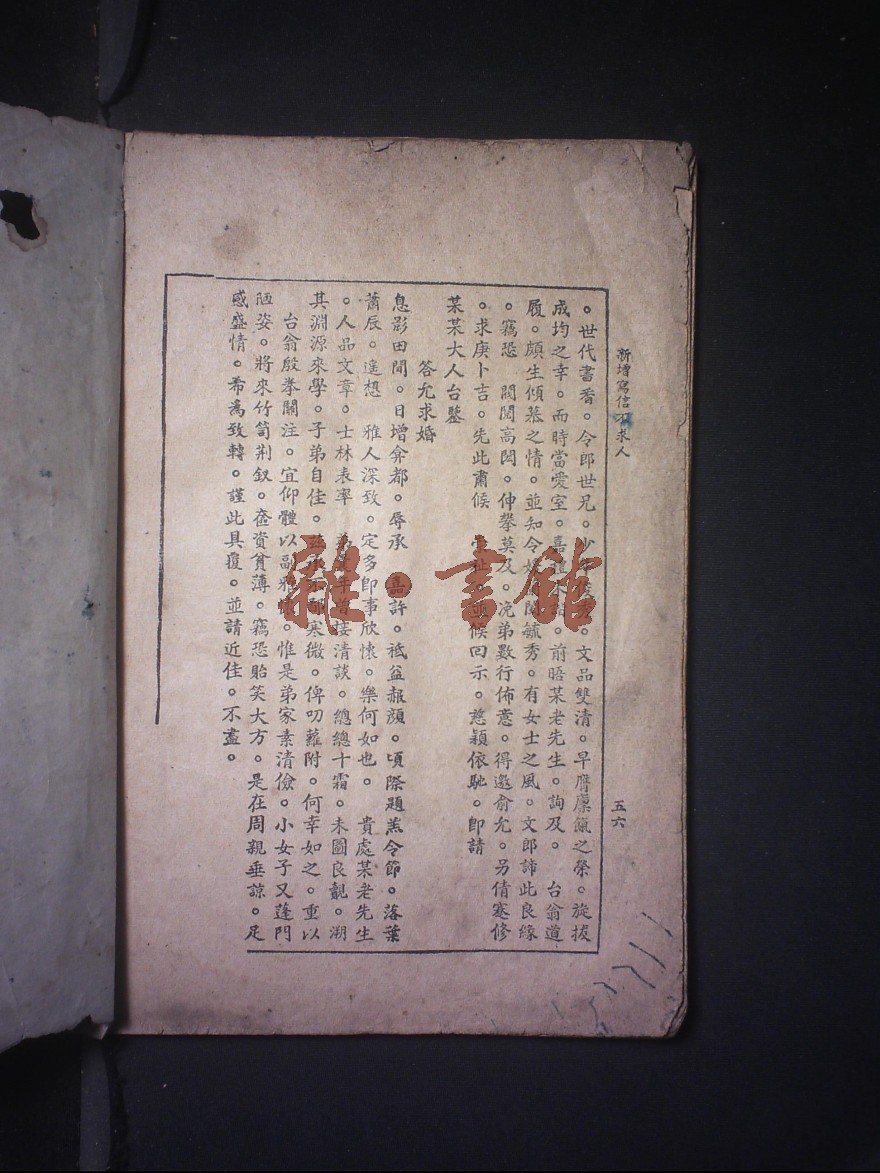 新增寫信不求人
五六
。世代書香。令郎世兄。少年文品雙清。早膺廩餼之榮。旋拔
成均之幸。而時當愛室。喜前晤某老先生。詢及。 台翁道
履。頗生傾慕之情。並知令閨毓秀。有女士之風。文郎諦此良緣
。竊恐 閥閱高閎。仲攀莫及。况弟數行佈意。得邀俞允。另倩蹇修
。求庚卜吉。先此肅候 崇祉。並候回示。慈穎依馳。卽請
某某大人台鑒
答允求婚
息影田間。日增弇都。辱承 嘉許。祗益赧顔。頃際題糕令節。落葉
蕭辰。遥想 雅人深致。定多卽事欣懷。樂何如也。 貴處某老先生
。人品文章。士林表率 接清談。總總十霜。未圖良覿。溯
其淵源來學。子弟自佳。不鄙寒微。俾叨蘿附。何幸如之。重以
台翁殷拳關注。宜仰體以副雅懷。惟是弟家素清儉。小女子又蓬門
陋姿。將來竹笥荆釵。奩資貧薄。竊恐貽笑大方。是在周親垂諒。足
感盛情。希爲致轉。謹此具覆。並請近佳。不盡。
雜·書館